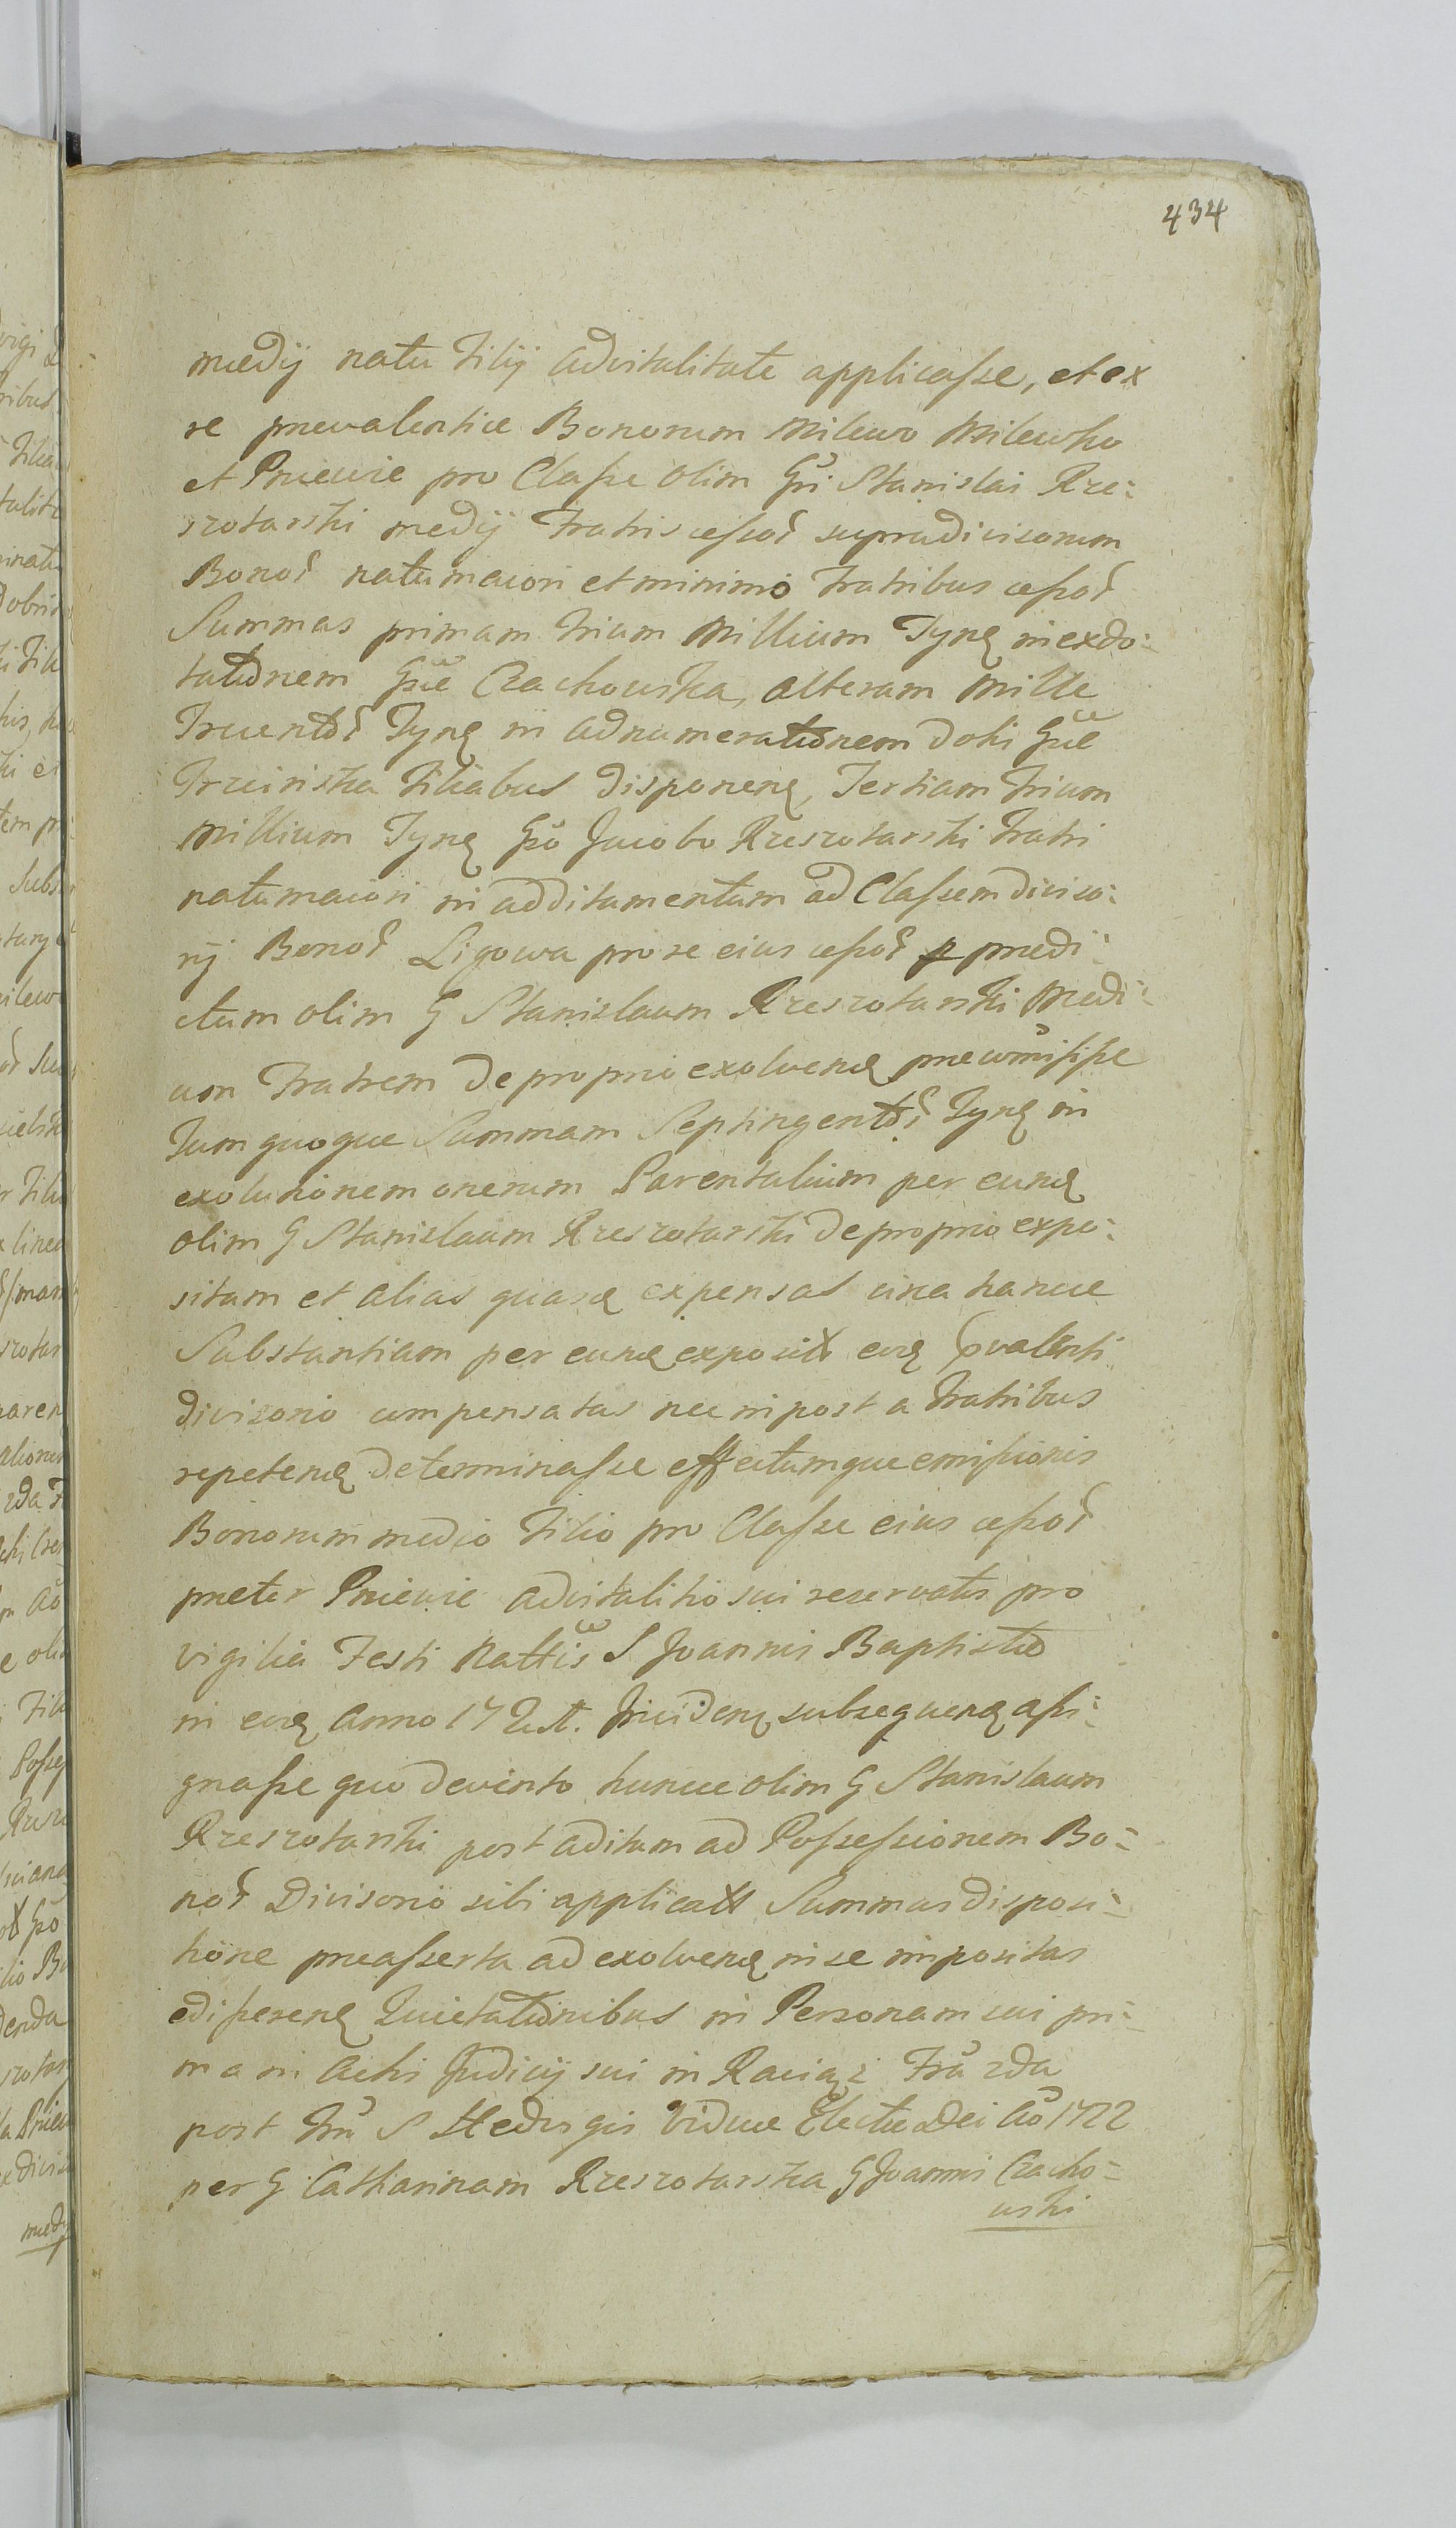 434
medij natu Filij advitalitate applicasse, et ex
re praevalentiae Bonorum Milewo Milewko
et Pniewie pro Classe olim Gsi Stanislai Rze-
szotarski medij Fratris cessor supradivisorum
Bonor natumaiori et minimo Fratribus cessor
Summas primam trium Millium Tynq in exdo-
tationem Gsae Czachowska, alteram Mille
Trecentor Tynq in adnumerationem doti Gsae
filiabus disponenq, Tertiam trium
Millium Tynq Gso Jacobo Rzeszotarski Fratri
natumaiori in additamentum ad Classem diviso-
rij Bonor Ligowa pro se eius cessor praedi-
ctum olim G Stanislaum Rzeszotarski Medi-
um Fratrem de proprio exolvenq praecommisisse
Tum quoque Summam Septingentor Tynq in
exolutionem onerum Parentalium per eunq
olim G Stanislaum Rzeszotarski de proprio expo-
situm et alias quasq expensas circa hancce
Substantiam per eunq exposit eoq valenti
divisorio compensatas nec inpost a Fratribus
repetenq determinasse effectumque emissionis
Bonorum medio Filio pro Classe eius cessor
praeter Pniewie advitalitio sui reservatis pro
vigilia Festi Nattis S Joannis Baptistae
in eoq Anno 172 Incidenq subsequenq assi-
gnasse quo devento huncce olim G Stanislaum
Rzeszotarski post aditum ad Possessionem Bo-
nor Divisorio sibi applicatt Summas disposi-
tione praeasserta ad exolvenq in se impositas
edisserenq Quietationibus in Personam sui pri-
ma in Actis Judicij sui in Raciąż Fra 2da
post Fru S Hedvigis Viduae Electae Dei Ao 1722
per G Catharinam Rzeszotarska G Joannis Czacho-
wski